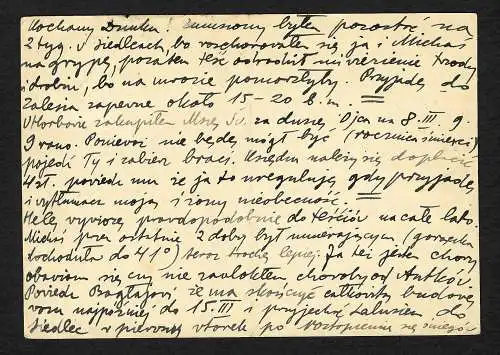 Kochany Dziuńku! zmuszony byłem pozostać na
2 tyg. w Siedlcach, bo rozchorowałem się ja i Michaś
na grypę, pozatem teść odradził mi wiezienie trzody
i drobiu, bo na mrozie pomarzłyby. Przyjadę do
Zalesia zapewne około 15-20 b.m.
W Horbowie zakupiłem Mszę Św. za duszę Ojca na 8 III g.
9 rano. Ponieważ nie będę mógł być (rocznica śmierci)
pojedź Ty i zabierz braci. Księdzu należy się dopłacić
4 zł. powiedz mu że ja to ureguluję gdy przyjadę
i wytłumacz moją i żony nieobecność.
Helę wywiozę prawdopodobnie do teściów na całe lato.
Michaś przez ostatnie 2 doby był umierający (gorączka
dochodziła do 41°) teraz trochę lepiej. Ja też jestem chory
obawiam się czy nie zawlokłem choroby od Antków.
Powiedz że ma skończyć całkowity budowę
wozu najpóźniej do 15.III i przyjechać do
Siedlec w pierwszy wtorek po roztopieniu się śniegów